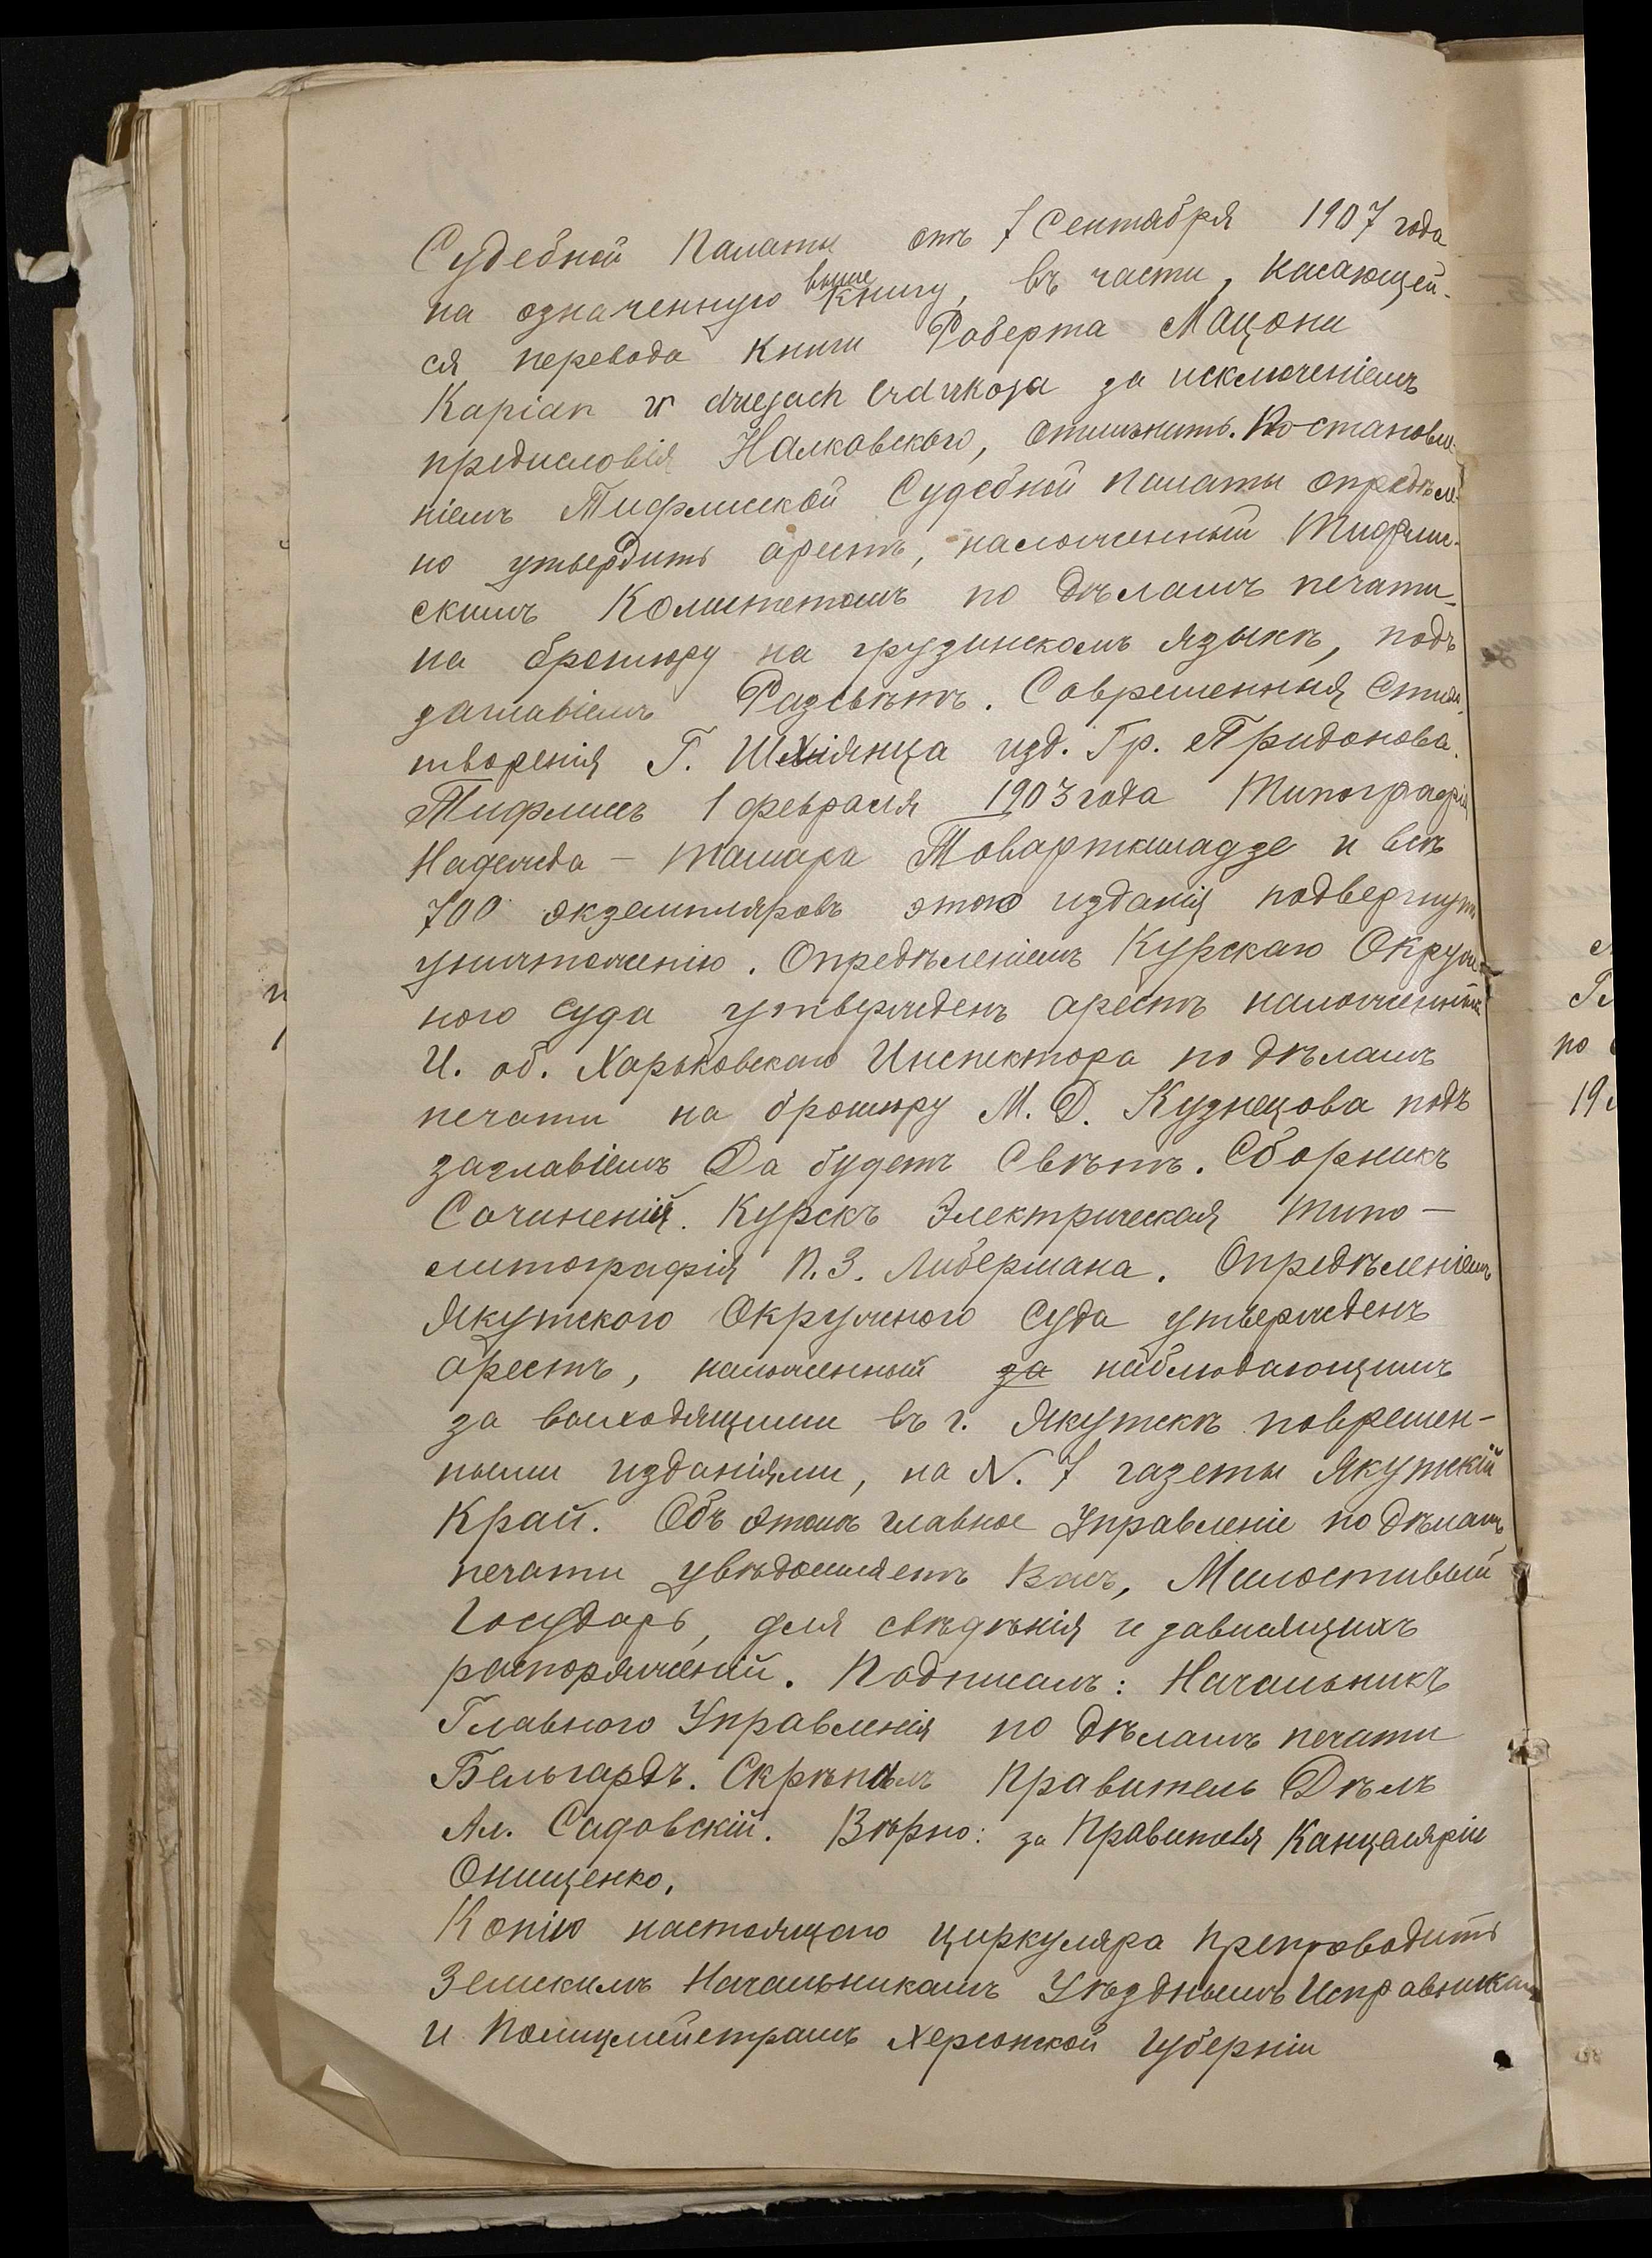 Судебной Палаты отъ 7 Сентября 1907 года
на означенную выше книгу, въ части, касающей-
ся перевода книги Роберта Мацони
Kapian w dziejach за исключеніемъ
предисловія Налковскаго, отмѣнить. Постановле-
ніемъ Тифлисской Судебной Палаты опредѣле-
но утвердить арестъ, наложенный Тифлис-
скимъ Комитетомъ по дѣламъ печати
на брошюру на грузинскомъ языкѣ, подъ
заглавіемъ Разсвѣтъ. Современныя Стихо-
творенія Г. изд. Гр. Придонова.
Тифлисъ 1 февраля 1903 года Типографія
Надежда – Тамара Товарткиладзе и всѣ
700 экземпляровъ этого изданія подвергнуть
уничтоженію. Опредѣленіемъ Курскаго Окруж-
ного суда утвержденъ арестъ наложенный
И. об. Харьковскаго Инспектора по дѣламъ
печати на брошюру М. Д. Кузнецова подъ
заглавіемъ Да будетъ Свѣтъ. Сборникъ
Сочиненій. Курскъ Электрическая Типо-
литографія П. З. Либермана. Опредѣленіемъ
Якутского Окружного Суда утвержденъ
арестъ, наложенный за наблюдающимъ
за выходящими въ г. Якутскѣ повремен-
ными изданіями, на N. 7 газеты Якутскій
Край. Объ этомъ главное Управленіе по дѣламъ
печати увѣдомляетъ Васъ, Милостивый
Государь, для свѣдѣнія и зависящихъ
распоряженій. Подписалъ: Начальникъ
Главного Управленія по дѣламъ печати
Бельгардъ. Скрѣпилъ Правитель Дѣлъ
Ал. Садовскій. Вѣрно: за Правителя Канцеляріи
Онищенко.
Копію настоящаго циркуляра препроводить
Земскимъ Начальникамъ Уѣзднымъ Исправникамъ
и Полицмейстрамъ Херсонской губерніи